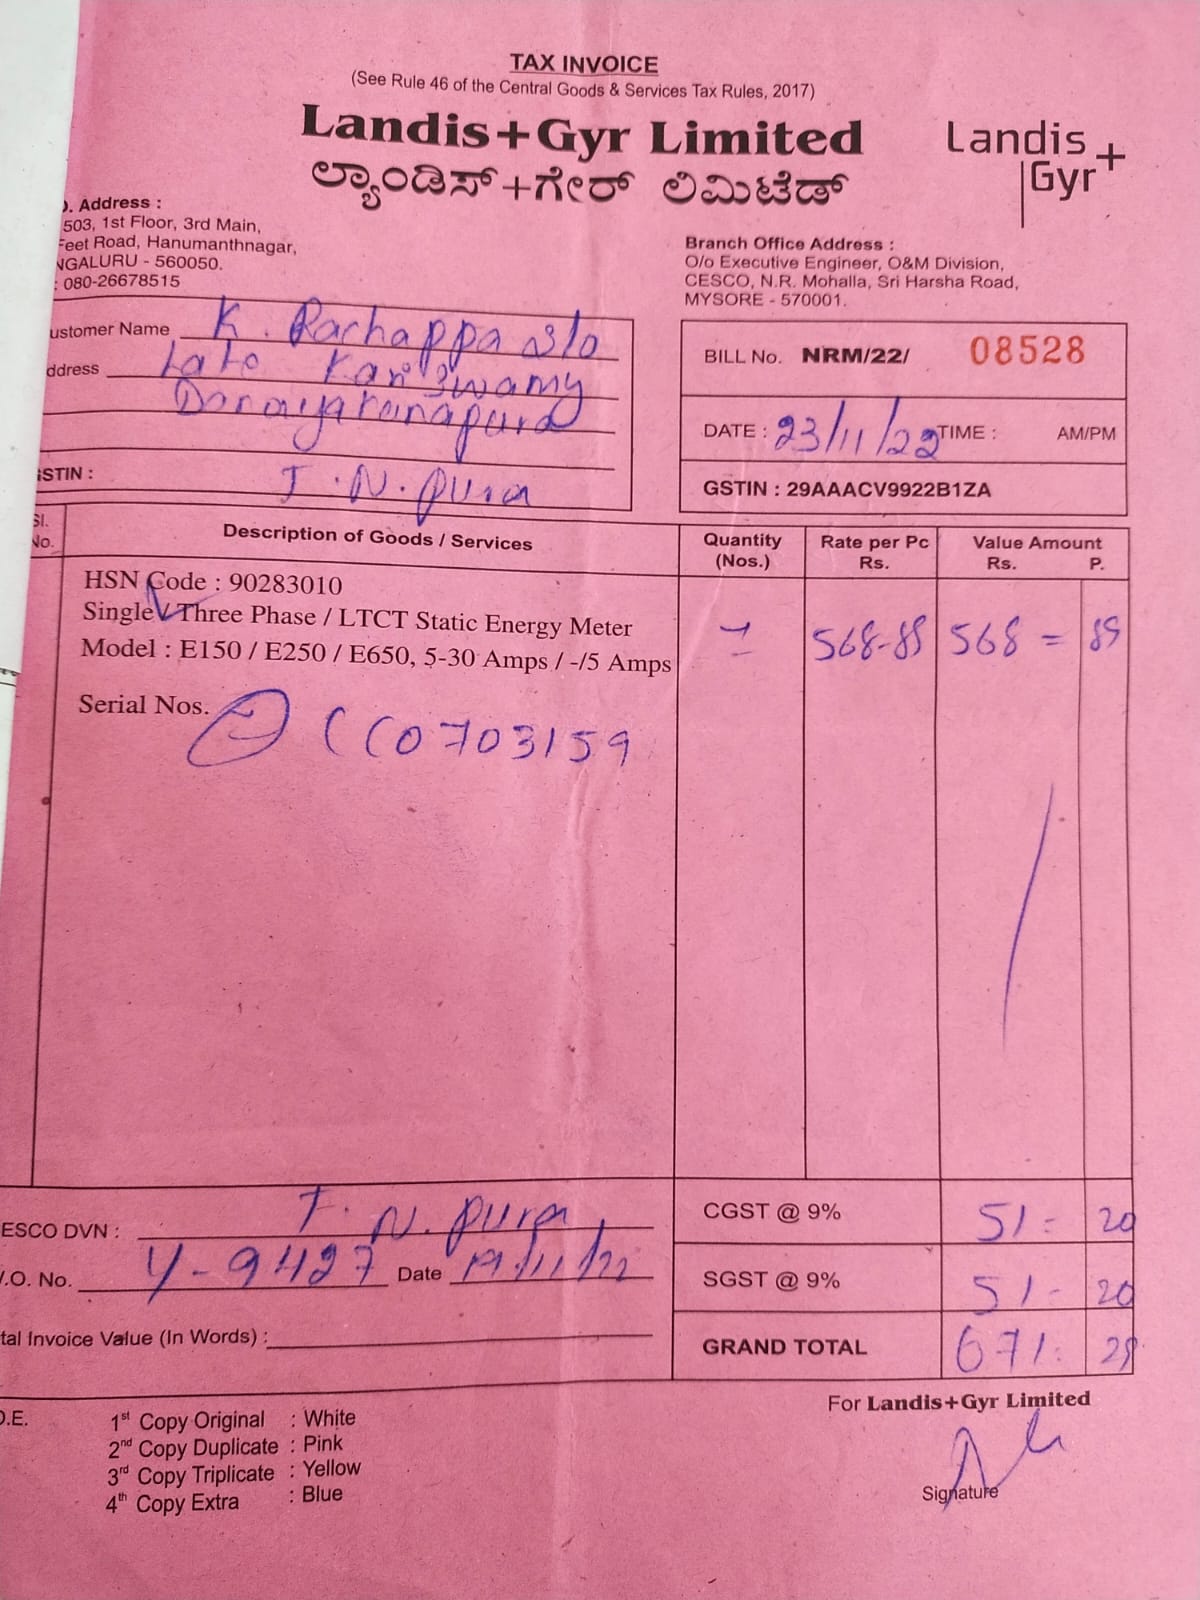 TAX INVOICE
(See Rule 46 of the Central Goods & Services Tax Rules, 2017)
Landis+Gyr Limited
ಲ್ಯಾಂಡಿಸ್+ಗೇರ್ ಲಿಮಿಟೆಡ್
Landis
Gyr+
Address :
503, 1st Floor, 3rd Main,
Feet Road, Hanumanthnagar,
NGALURU - 560050.
: 080-26678515
Branch Office Address :
O/o Executive Engineer, O&M Division,
CESCO, N.R. Mohalla, Sri Harsha Road,
MYSORE - 570001.
ustomer Name K. Rachappa S/o
ddress Late
T.N.pura
STIN :
BILL No. NRM/22/ 08528
DATE : 23/11/22 TIME : AM/PM
GSTIN : 29AAACV9922B1ZA
Sl. No. Description of Goods / Services Quantity (Nos.) Rate per Pc Rs. Value Amount Rs. P.
HSN Code : 90283010
Single / Three Phase / LTCT Static Energy Meter 1 568-89 568 = 89
Model : E150 / E250 / E650, 5-30 Amps / -/5 Amps
Serial Nos. 0703159
ESCO DVN : T.N.pura
.O. No. Y-9427 Date 19/11/22
tal Invoice Value (In Words) :
CGST @ 9% 51 - 20
SGST @ 9% 51 - 20
GRAND TOTAL 671 : 29
For Landis+Gyr Limited
Signature
O.E.
1st Copy Original : White
2nd Copy Duplicate : Pink
3rd Copy Triplicate : Yellow
4th Copy Extra : Blue